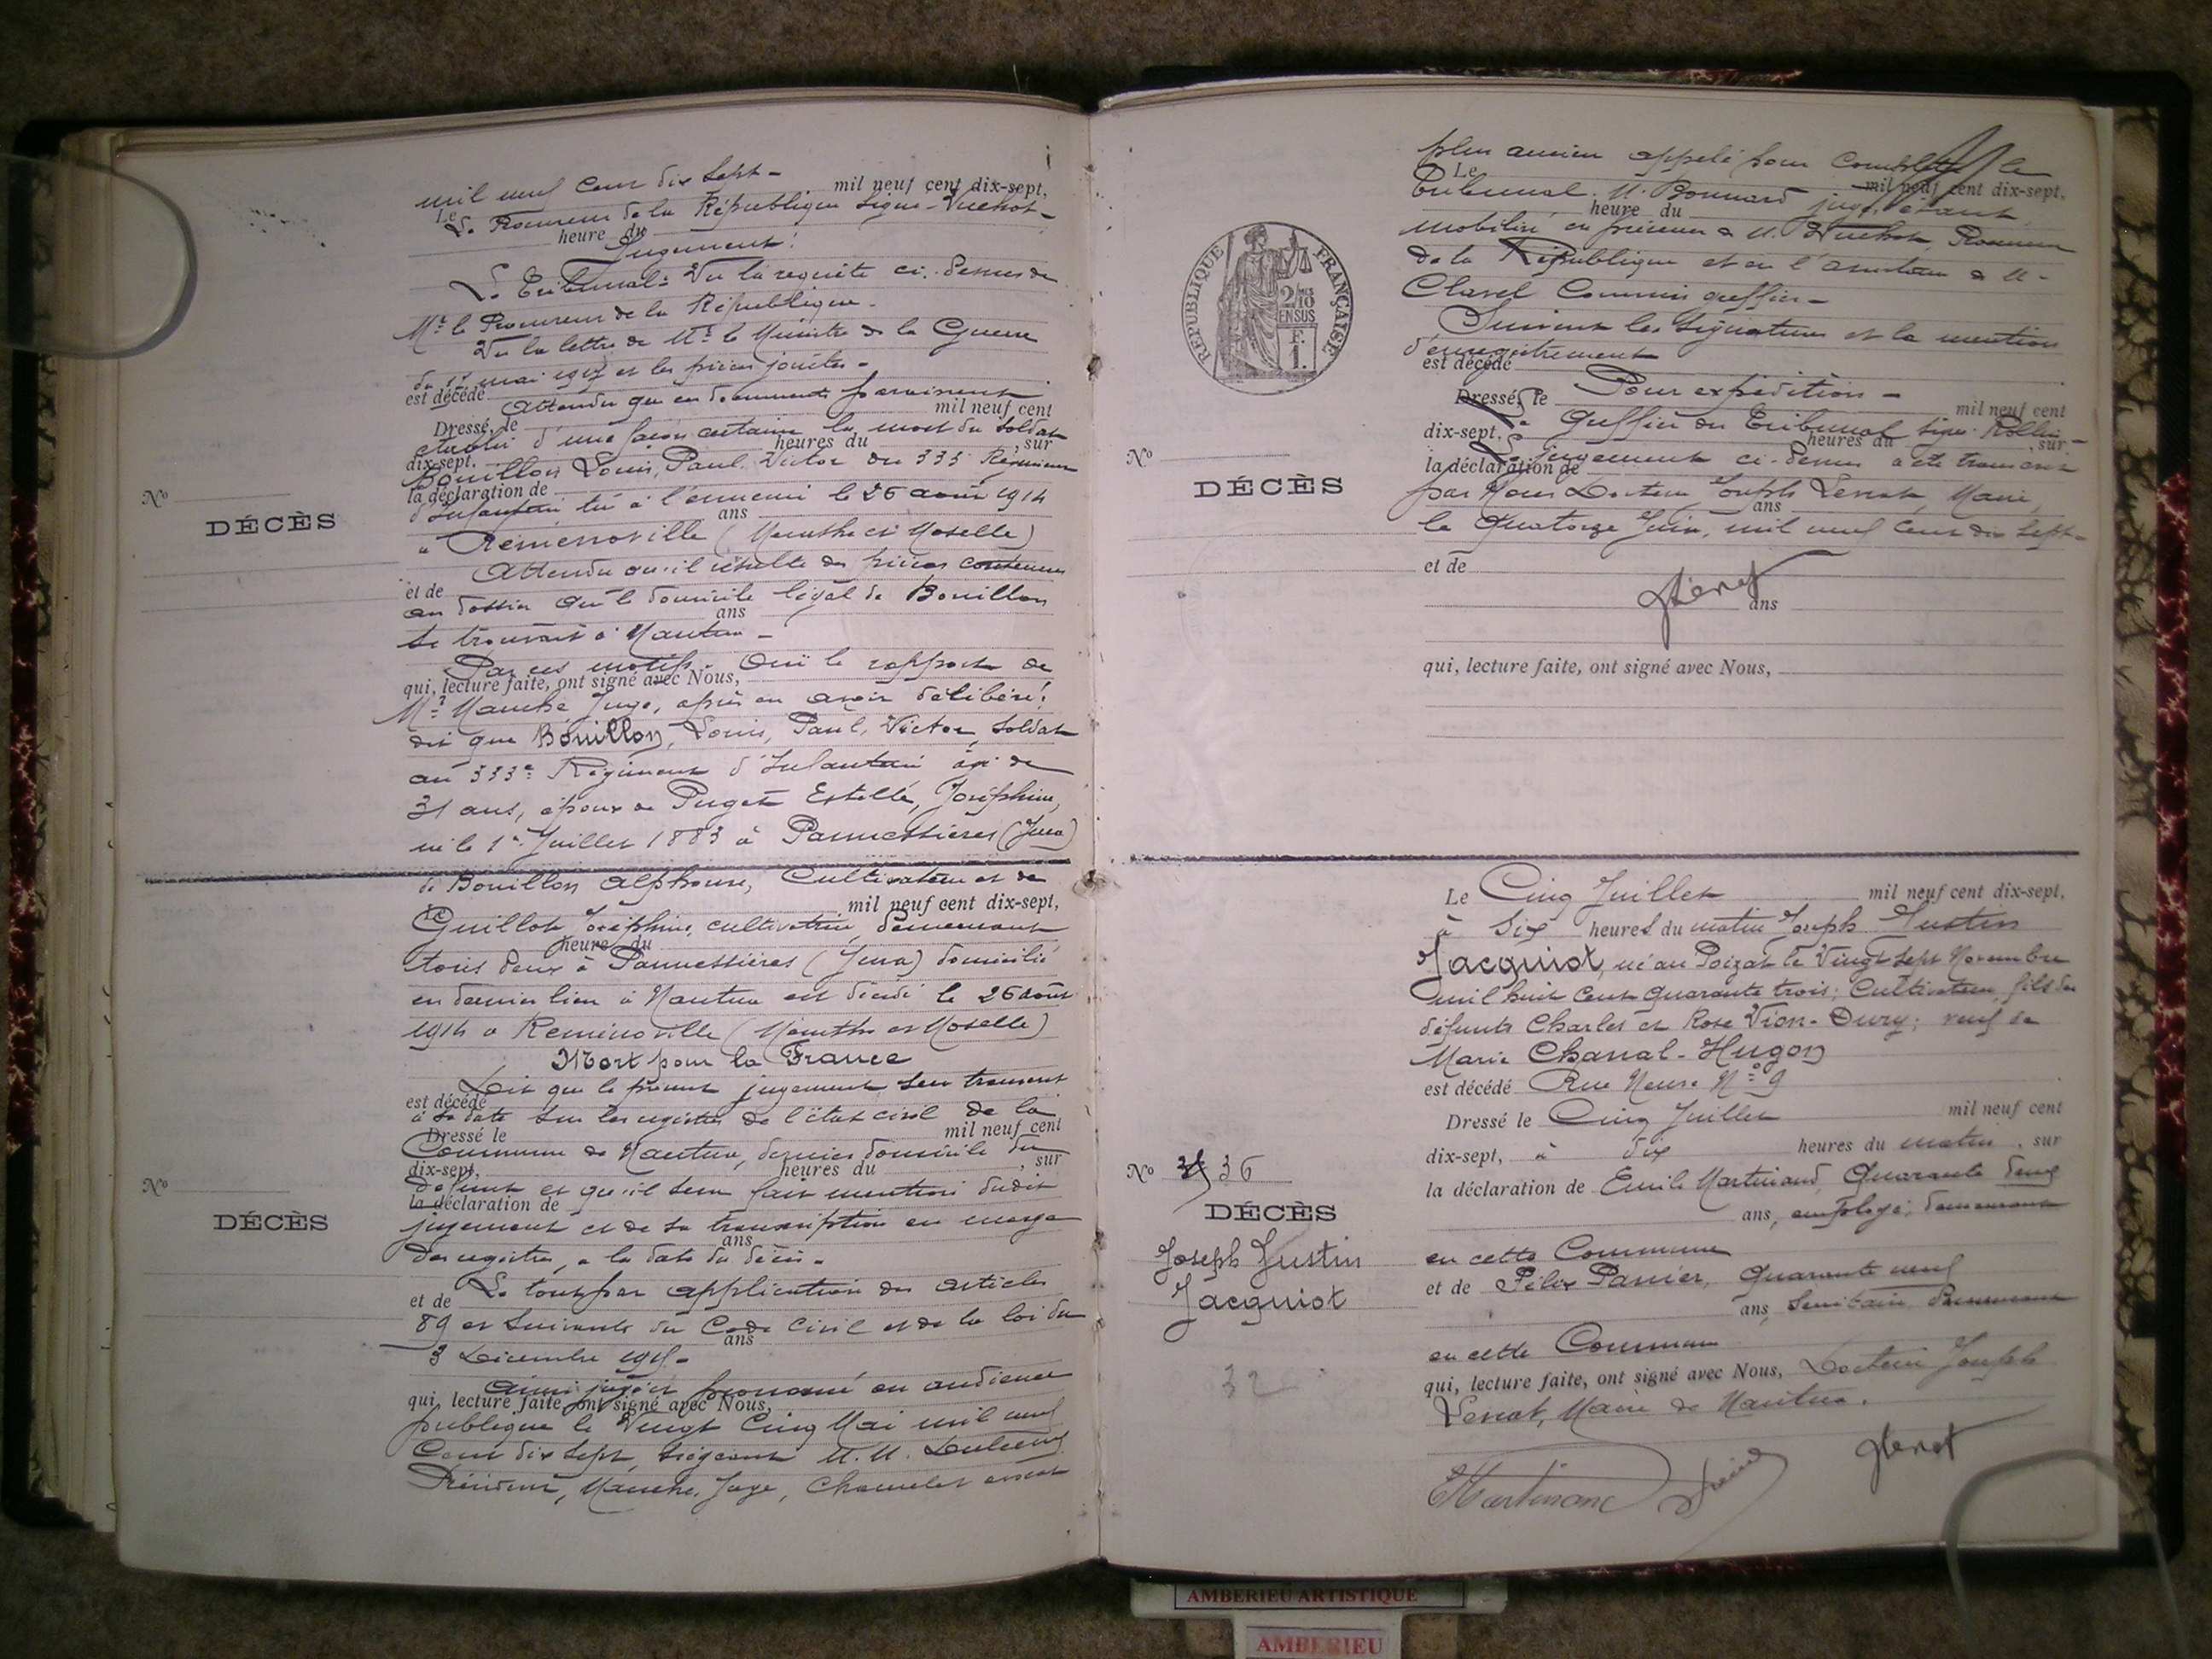 mil neuf cent dix sept -
mil neuf cent dix-sept,
Le
Le Procureur de la République signé - Vuchot -
heure du
Jugement :
Le Tribunal : Vu la requête ci-dessus de
Mr le Procureur de la République -
Vu la lettre de Mr le Ministre de la Guerre
du 1er mai 1917 et les pièces jointes -
est décédé
Attendu que ces documents
Dressé, le
mil neuf cent
établir d'une façon certaine la mort du soldat
dix-sept,
heures du
, sur
Bouillon Louis, Paul, Victor du 333 Régiment
la déclaration de
d'Infanterie tué à l'ennemi le 26 août 1914
ans
à Réménoville (Meurthe et Moselle)
Attendu qu'il résulte des pièces contenues
et de
au dossier que le domicile légal de Bouillon
ans
se trouvait à Nantua -
Par ces motifs - Ouï le rapport de
qui, lecture faite, ont signé avec Nous,
Mr Manche, Juge, après en avoir délibéré :
dit que Bouillon, Louis, Paul, Victor, soldat
au 333e Régiment d'Infanterie âgé de
31 ans, époux de Puget Estelle, Joséphine,
né le 1er Juillet 1883 à Pannessières (Jura)
No
DÉCÈS
de Bouillon Alphonse, Cultivateur et de
mil neuf cent dix-sept,
Le
Guillot Joséphine, cultivatrice, demeurant
heure du
tous deux à Pannessières (Jura) domicilié
en dernier lieu à Nantua est décédé le 26 août
1914 à Réménoville (Meurthe et Moselle)
Mort pour la France
Dit que le présent jugement sera transcrit
est décédé
à sa date sur les registres de l'état civil de la
Dressé le
mil neuf cent
Commune de Nantua, dernier domicile du
dix-sept,
heures du
, sur
défunt et qu'il sera fait mention dudit
la déclaration de
jugement et de sa transcription en marge
ans
des registres, à la date du décès -
Le tout par application des articles
et de
89 et suivants du Code Civil et de la loi du
ans
3 Décembre 1915 -
Ainsi jugé et prononcé en audience
qui, lecture faite ont signé avec Nous,
publique le Vingt Cinq Mai mil neuf
Cent dix sept, siégeant M.M.
Président, Manche, Juge, avocat
No
DÉCÈS
plus ancien appelé pour compléter le
Le
mil neuf cent dix-sept,
Tribunal. M. Bonnard juge étant
heure du
mobilisé en présence de M. Vuchot, Procureur
de la République et en l'assistance de M.
Clavel Commis greffier -
Suivent les signatures et la mention
d'enregistrement
est décédé
RÉPUBLIQUE FRANÇAISE
2/10
EN SUS
F.
1.
Pour expédition -
Dressé, le
mil neuf cent
Le Greffier du Tribunal signé Rollin -
dix-sept,
heures du
, sur
Le jugement ci-dessus a été transcrit
la déclaration de
par Nous Docteur Joseph Levrat, Maire,
ans
le Quatorze Juin, mil neuf cent dix sept -
et de
ans
qui, lecture faite, ont signé avec Nous,
No
DÉCÈS
Le Cinq Juillet mil neuf cent dix-sept,
à Six heures du matin Joseph Justin
Jacquiot, né au Poizat le Vingt sept Novembre
mil huit cent quarante trois ; Cultivateur, fils des
défunts Charles et Rose Vion-Dury ; veuf de
Marie Chanal-Hugon
est décédé Rue Neuve No 9
Dressé le Cinq Juillet mil neuf cent
dix-sept, à dix heures du matin, sur
la déclaration de Emile Martinand, Quarante deux
ans, employé, demeurant
en cette Commune
et de Félix Panier, Quarante neuf
ans, demeurant
en cette Commune
qui, lecture faite, ont signé avec Nous, Docteur Joseph
Levrat, Maire de Nantua.
EMartinand
No 36
DÉCÈS
Joseph Justin
Jacquiot
32
AMBERIEU ARTISTIQUE
AMBERIEU